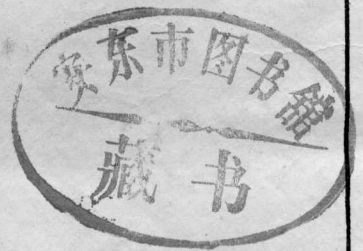 安东市图书馆
藏书